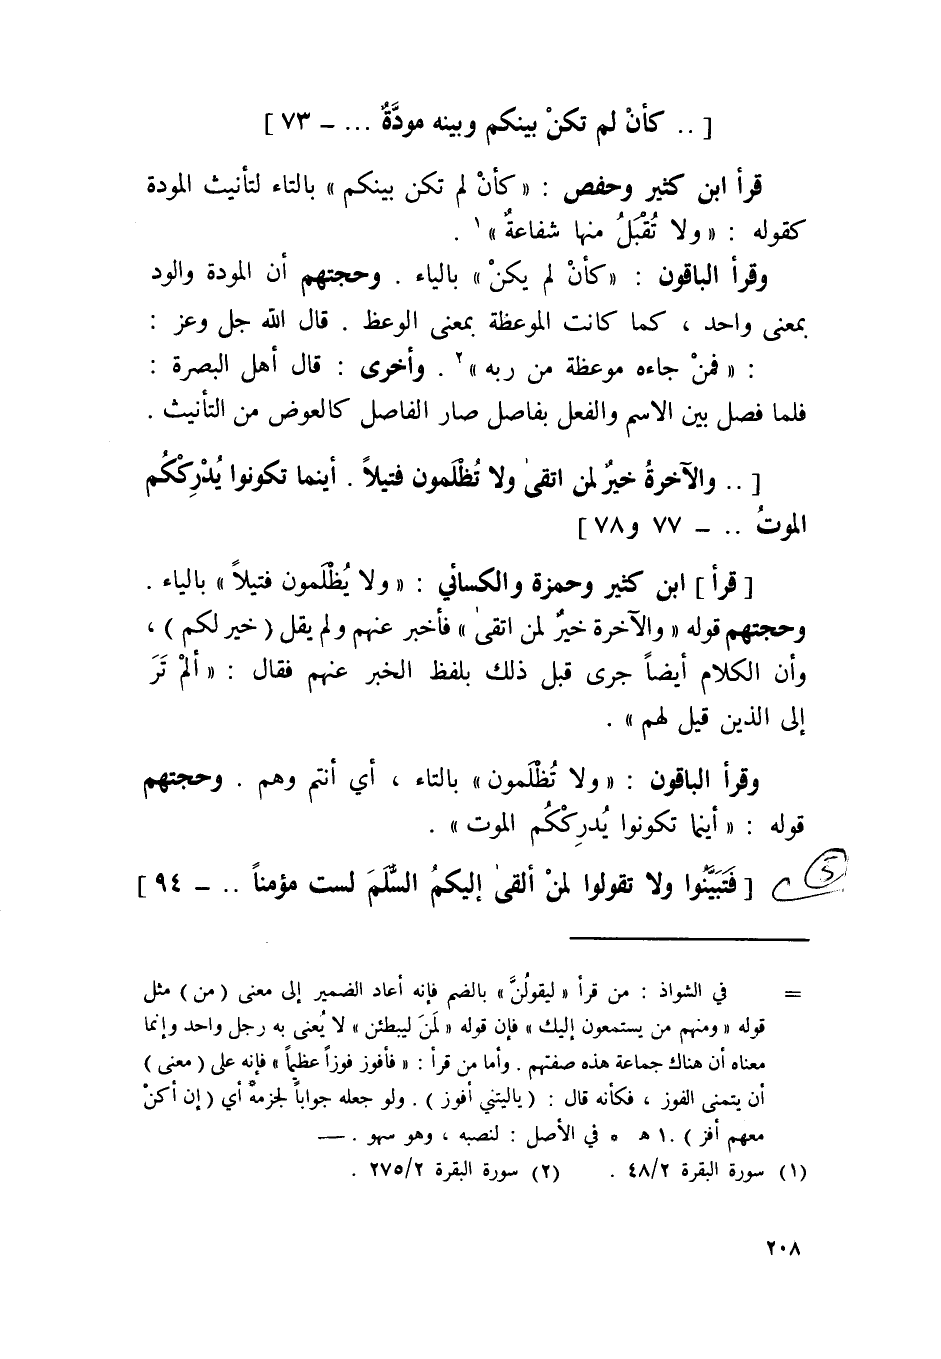 [ .. كأنْ لم تكنْ بينكم وبينه مودَّةٌ ... – ٧٣ ]
قرأ ابن كثير وحفص : « كأنْ لم تكن بينكم » بالتاء لتأنيث المودة
كقوله : « ولا تُقْبَلُ منها شفاعةٌ »¹ .
وقرأ الباقون : « كأنْ لم يكنْ » بالياء . وحجتهم أن المودة والود
بمعنى واحد ، كما كانت الموعظة بمعنى الوعظ . قال الله جل وعز :
: « فمنْ جاءه موعظة من ربه »² . وأخرى : قال أهل البصرة :
فلما فصل بين الاسم والفعل بفاصل صار الفاصل كالعوض من التأنيث .
[ .. والآخرةُ خيرٌ لمن اتقىٰ ولا تُظْلَمون فتيلاً . أينما تكونوا يُدْرِكْكُم
الموتُ .. – ٧٧ و٧٨ ]
[ قرأ ] ابن كثير وحمزة والكسائي : « ولا يُظْلَمون فتيلاً » بالياء .
وحجتهم قوله « والآخرة خيرٌ لمن اتقىٰ » فأخبر عنهم ولم يقل ( خير لكم ) ،
وأن الكلام أيضاً جرى قبل ذلك بلفظ الخبر عنهم فقال : « ألمْ تَرَ
إلى الذين قيل لهم » .
وقرأ الباقون : « ولا تُظْلَمون » بالتاء ، أي أنتم وهم . وحجتهم
قوله : « أينما تكونوا يُدرِكْكُم الموت » .
[ فَتَبَيَّنُوا ولا تقولوا لمنْ ألقىٰ إليكمُ السَّلَمَ لست مؤمناً .. – ٩٤ ]
= في الشواذ : من قرأ « ليقولُنَّ » بالضم فإنه أعاد الضمير إلى معنى ( من ) مثل
قوله « ومنهم من يستمعون إليك » فإن قوله « لَمَنَ ليبطئن » لا يُعنى به رجل واحد وإنما
معناه أن هناك جماعة هذه صفتهم . وأما من قرأ : « فأفوز فوزاً عظيماً » فإنه على ( معنى )
أن يتمنى الفوز ، فكأنه قال : ( ياليتني أفوز ) . ولو جعله جواباً لجزمهْ أي ( إن أكنْ
معهم أفز ) .١ هـ ه في الأصل : لنصبه ، وهو سهو . —
(١) سورة البقرة ٤٨/٢ . (٢) سورة البقرة ٢٧٥/٢ .
٢٠٨